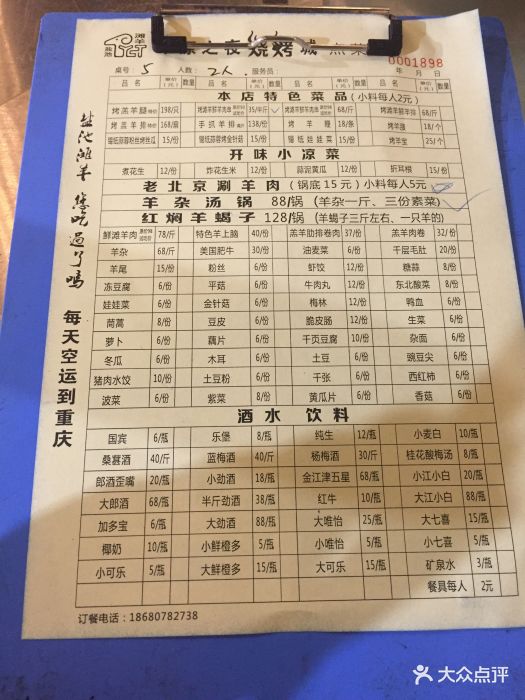 滩羊
盐池
YCT
之夜烧烤城 点菜
0001898
桌号: 5 人数: 2人. 服务员: 年 月 日
品名 单价(元) 数量 品名 单价(元) 数量 品名 单价(元) 数量 品名 单价(元) 数量
本店特色菜品(小料每人2元)
烤羔羊腿 198/只 35/半斤 68/斤 烤滩羊鲜羊排 68/斤
烤羔羊排 168/扇 手抓羊排 68/斤 烤羊鞭 38/条 烤羊腰 18/个
锡纸蒜蓉粉丝烤丝瓜 15/份 锡纸蒜蓉烤金针菇 15/份 锡纸娃娃菜 15/份 烤羊宝 25/个
开味小凉菜
煮花生 12/份 炸花生米 12/份 蒜泥黄瓜 12/份 折耳根 15/份
老北京涮羊肉(锅底15元)小料每人5元
羊杂汤锅 88/锅 (羊杂一斤、三份素菜)
红焖羊蝎子 128/锅 (羊蝎子三斤左右、一只羊的)
鲜滩羊肉 78/斤 特色羊上脑 40/份 羔羊肋排卷肉 37/份 羔羊肉卷 32/份
羊杂 68/斤 美国肥牛 30/份 油麦菜 6/份 千层毛肚 20/份
羊尾 15/份 粉丝 6/份 虾饺 12/份 糖蒜 8/份
冻豆腐 6/份 平菇 6/份 牛肉丸 12/份 东北酸菜 8/份
娃娃菜 6/份 金针菇 6/份 梅林 12/份 鸭血 6/份
茼蒿 8/份 豆皮 6/份 脆皮肠 12/份 生菜 6/份
萝卜 6/份 藕片 6/份 千页豆腐 10/份 杂面 6/份
冬瓜 6/份 木耳 6/份 土豆 6/份 豌豆尖 6/份
猪肉水饺 10/份 土豆粉 6/份 千张 6/份 西红柿 6/份
波菜 6/份 紫菜 8/份 黄瓜片 6/份 香菇 6/份
酒水 饮料
国宾 6/瓶 乐堡 8/瓶 纯生 12/瓶 小麦白 10/瓶
桑葚酒 40/斤 蓝梅酒 40/斤 杨梅酒 30/斤 桂花酸梅汤 8/瓶
郎酒歪嘴 20/瓶 小劲酒 18/瓶 金江津五星 68/瓶 小江小白 20/瓶
大郎酒 68/瓶 半斤劲酒 38/瓶 红牛 10/瓶 大江小白 88/瓶
加多宝 6/瓶 大劲酒 88/瓶 大唯怡 25/瓶 大七喜 15/瓶
椰奶 10/瓶 小鲜橙多 5/瓶 小唯怡 5/瓶 小七喜 5/瓶
小可乐 5/瓶 大鲜橙多 15/瓶 大可乐 15/瓶 矿泉水 3/瓶
餐具每人 2元
订餐电话:18680782738
盐池滩羊 您吃过了吗
每天空运到重庆
大众点评